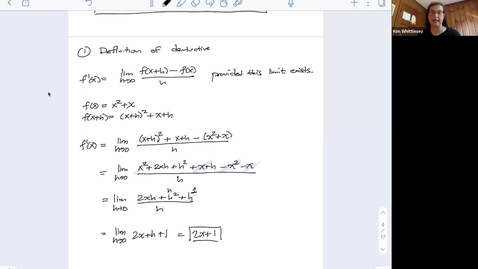 ① Definition of derivative
f'(x) = lim h→0 f(x+h) - f(x) / h provided this limit exists.
f(x) = x² + x
f(x+h) = (x+h)² + x+h
f'(x) = lim h→0 (x+h)² + x+h - (x²+x) / h
= lim h→0 x² + 2xh + h² + x + h - x² - x / h
= lim h→0 2xh + h² + h / h
= lim h→0 2x + h + 1 = 2x+1
Kim Whittlesey
4